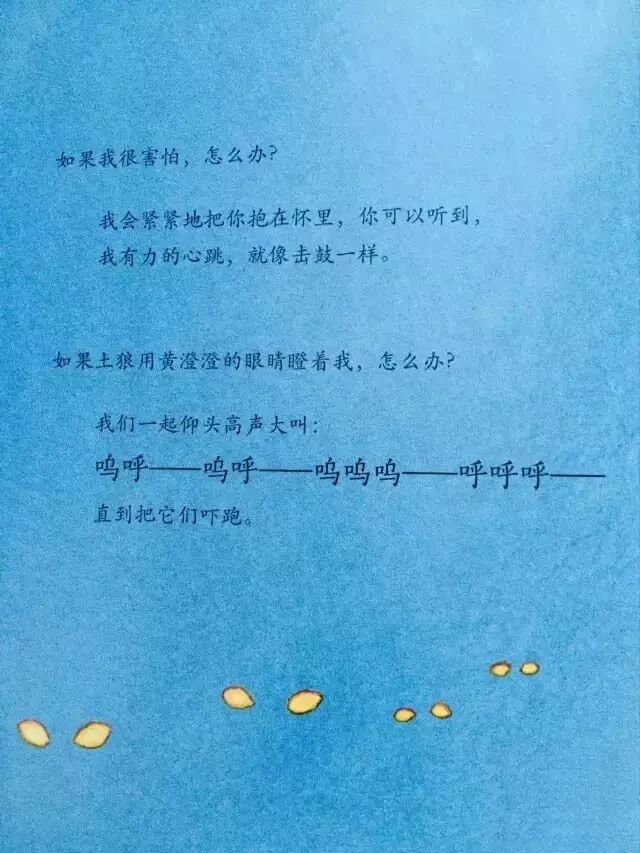 如果我很害怕，怎么办？
我会紧紧地把你抱在怀里，你可以听到，
我有力的心跳，就像击鼓一样。
如果土狼用黄澄澄的眼睛瞪着我，怎么办？
我们一起仰头高声大叫：
呜呼——呜呼——呜呜呜——呼呼呼——
直到把它们吓跑。